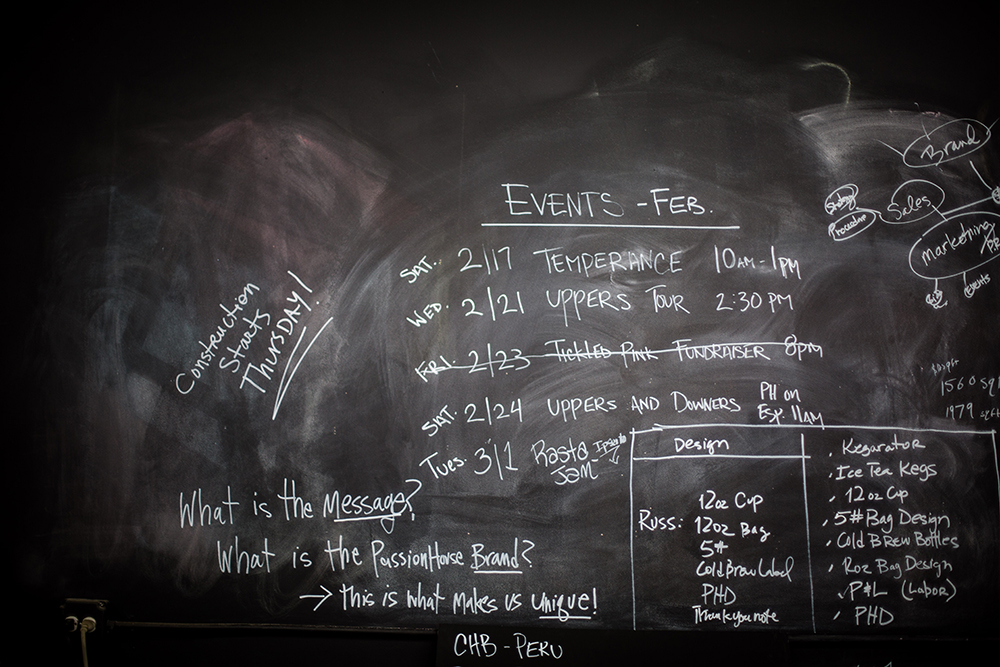 Brand
Sales
Strategy
Procedure
Marketing
Events
EVENTS - FEB.
SAT. 2/17 TEMPERANCE 10AM-1PM
WED. 2/21 UPPERS TOUR 2:30 PM
FRI. 2/23 TICKLED PINK FUNDRAISER 8PM
SAT. 2/24 UPPERS AND DOWNERS PH on
Esp. 11AM
Tues. 3/1 Rasta
Jam
Construction
Starts
THURSDAY!
1560 sq
1979 sqft
What is the Message?
What is the PassionHorse Brand?
→ this is what makes us unique!
Design
Russ: 12oz Cup
12oz Bag
5#
Cold Brew Label
PHD
Thank you note
Kegarator
Ice Tea Kegs
12oz Cup
5# Bag Design
Cold BREW Bottles
Roz Bag Design
✓P&L (Labor)
PHD
CHB - PERU